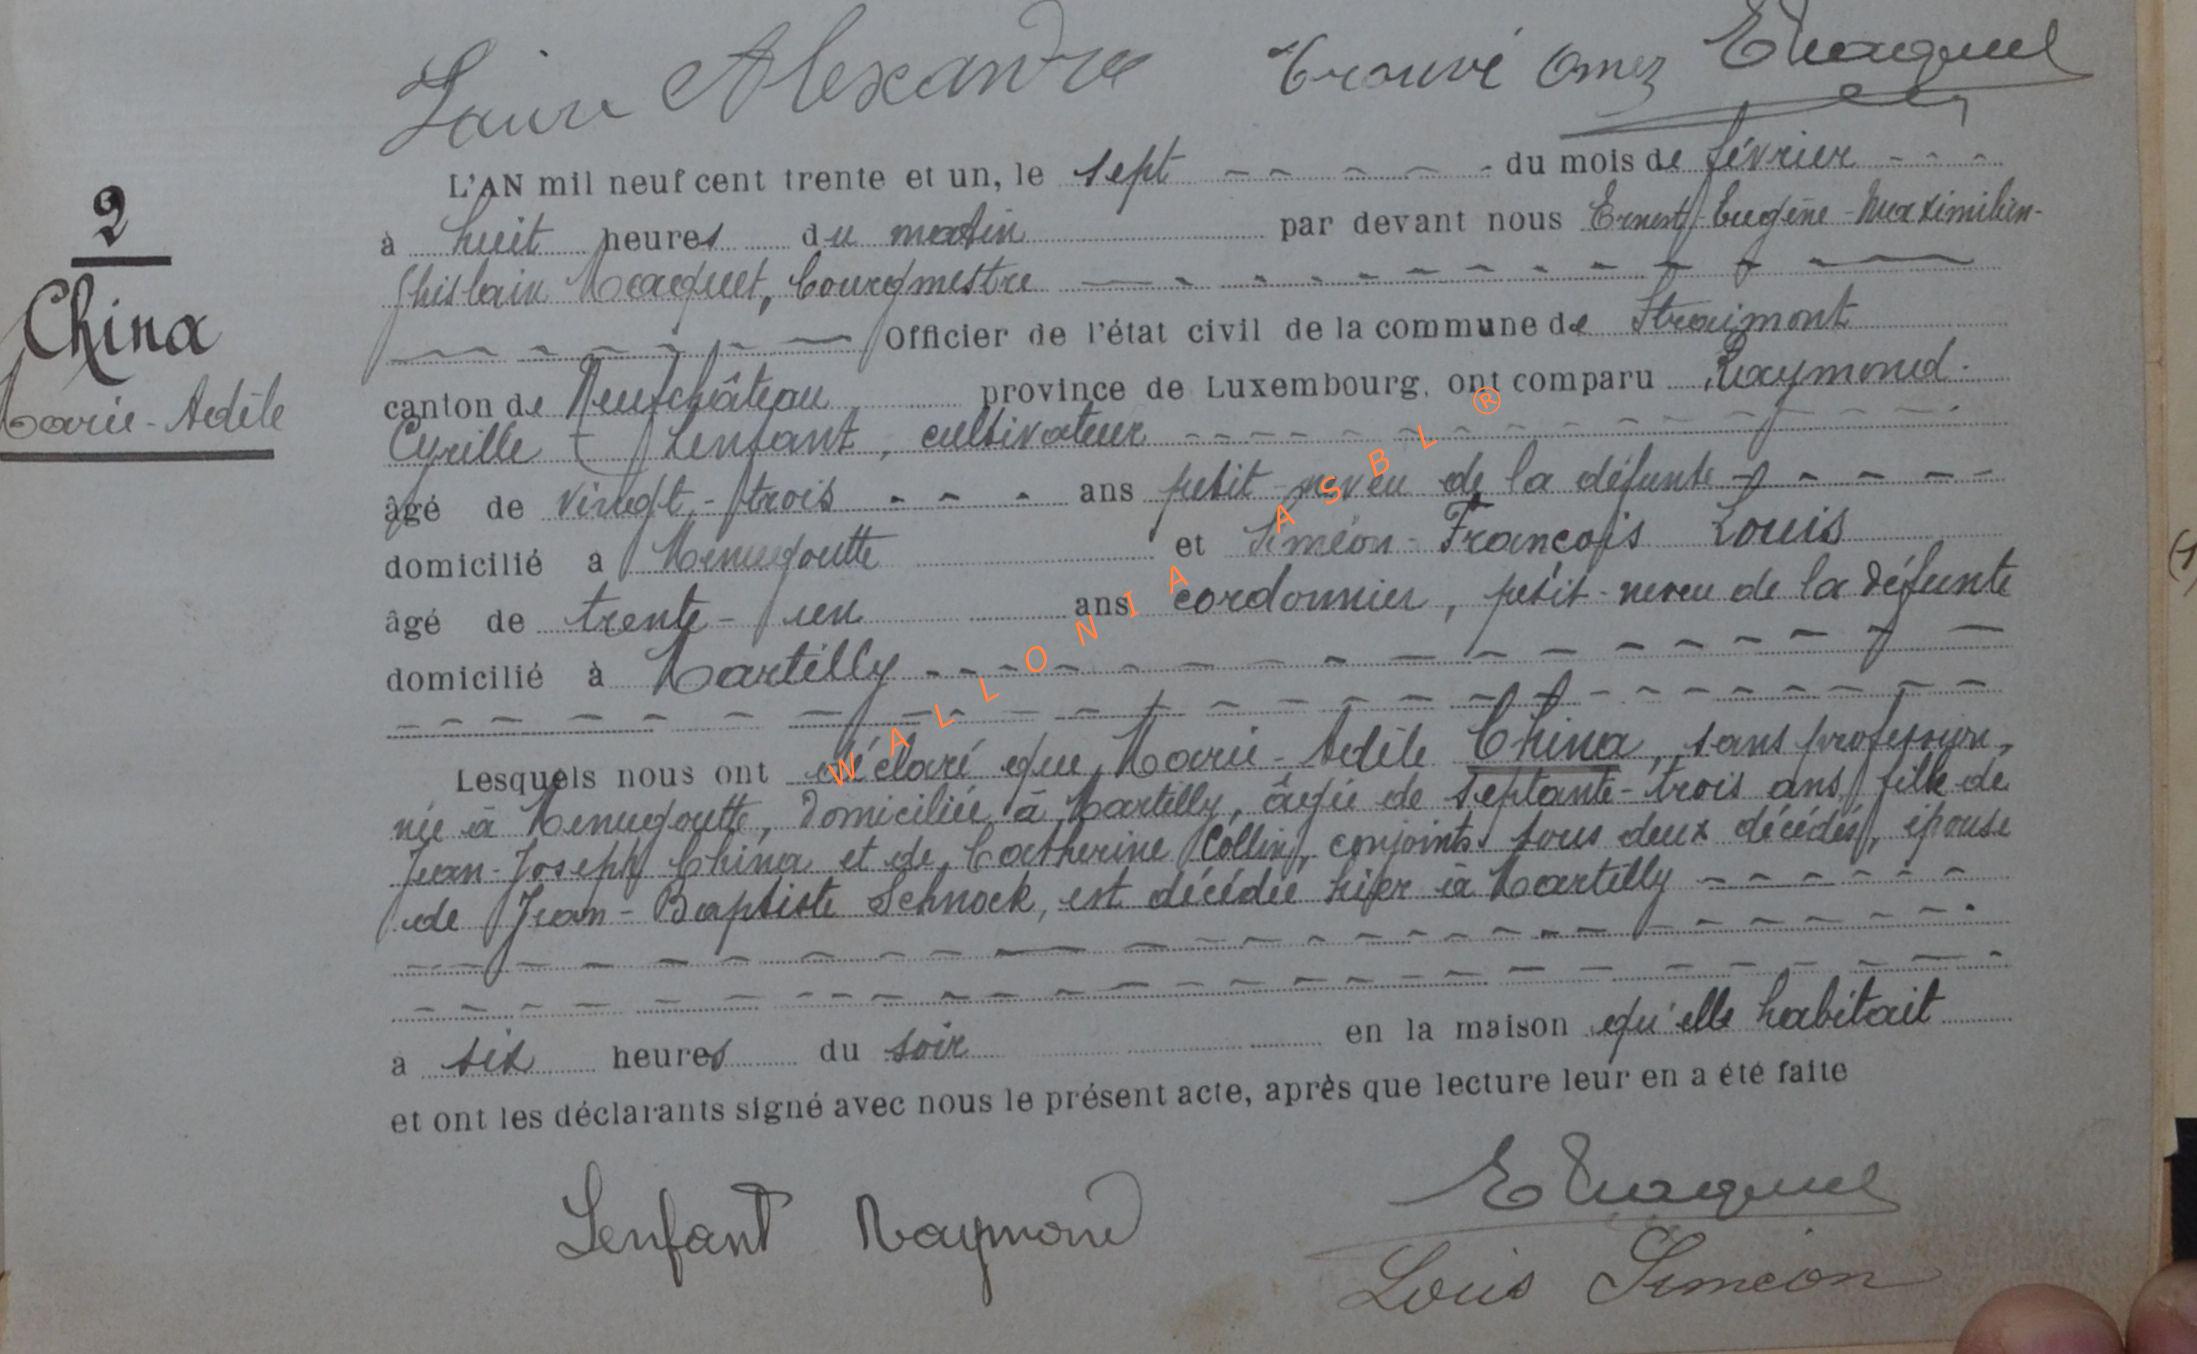 Alexandre Trouvé Omer E Maquet
L'AN mil neuf cent trente et un, le sept du mois de février
2
à huit heures du matin par devant nous Ernest-Eugène-Maximilien-
China
Ghislain Maquet, bourgmestre
Officier de l'état civil de la commune de Straimont
Marie-Adèle
canton de Neufchâteau province de Luxembourg, ont comparu Raymond-
Cyrille Lenfant, cultivateur
âgé de vingt-trois ans petit-neveu de la défunte
domicilié à Menugoutte et Siméon-François Louis
âgé de trente-un ans cordonnier, petit-neveu de la défunte
domicilié à Martilly
Lesquels nous ont déclaré que Marie-Adèle China, sans profession,
née à Menugoutte, domiciliée à Martilly, âgée de septante-trois ans, fille de
Jean-Joseph China et de Catherine Collin, conjoints tous deux décédés, épouse
de Jean-Baptiste Schnock, est décédée hier à Martilly
à six heures du soir en la maison qu'elle habitait
et ont les déclarants signé avec nous le présent acte, après que lecture leur en a été faite
E Maquet
Lenfant Raymond
Louis Siméon
WALLONIA ASBL ®
(1